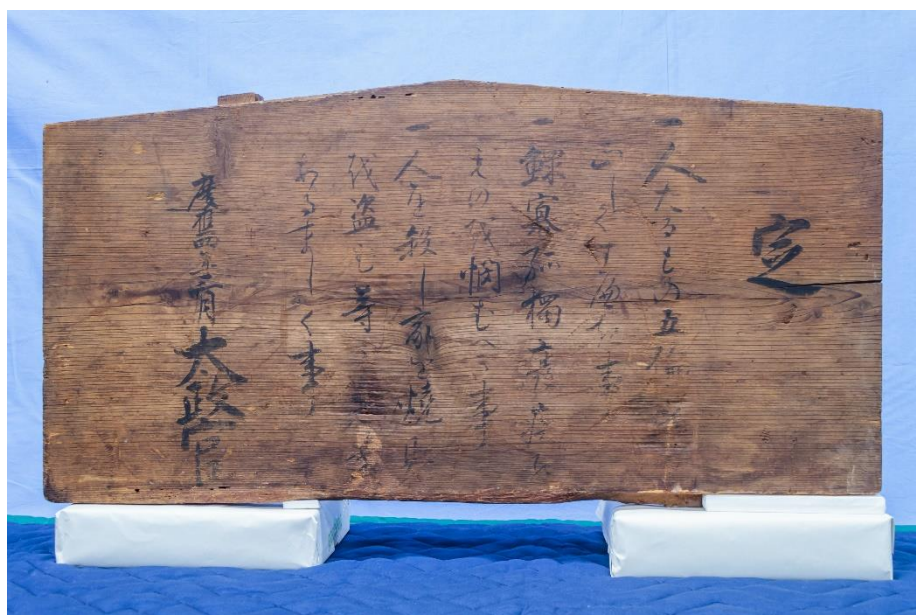 定
一人たるもの五倫
正しくすへき事
一鰥寡孤獨癈疾の
ものを憫むへき事
一人を殺し家を焼き財
を盗む等の悪業
あるましく事
慶應四年三月 太政官